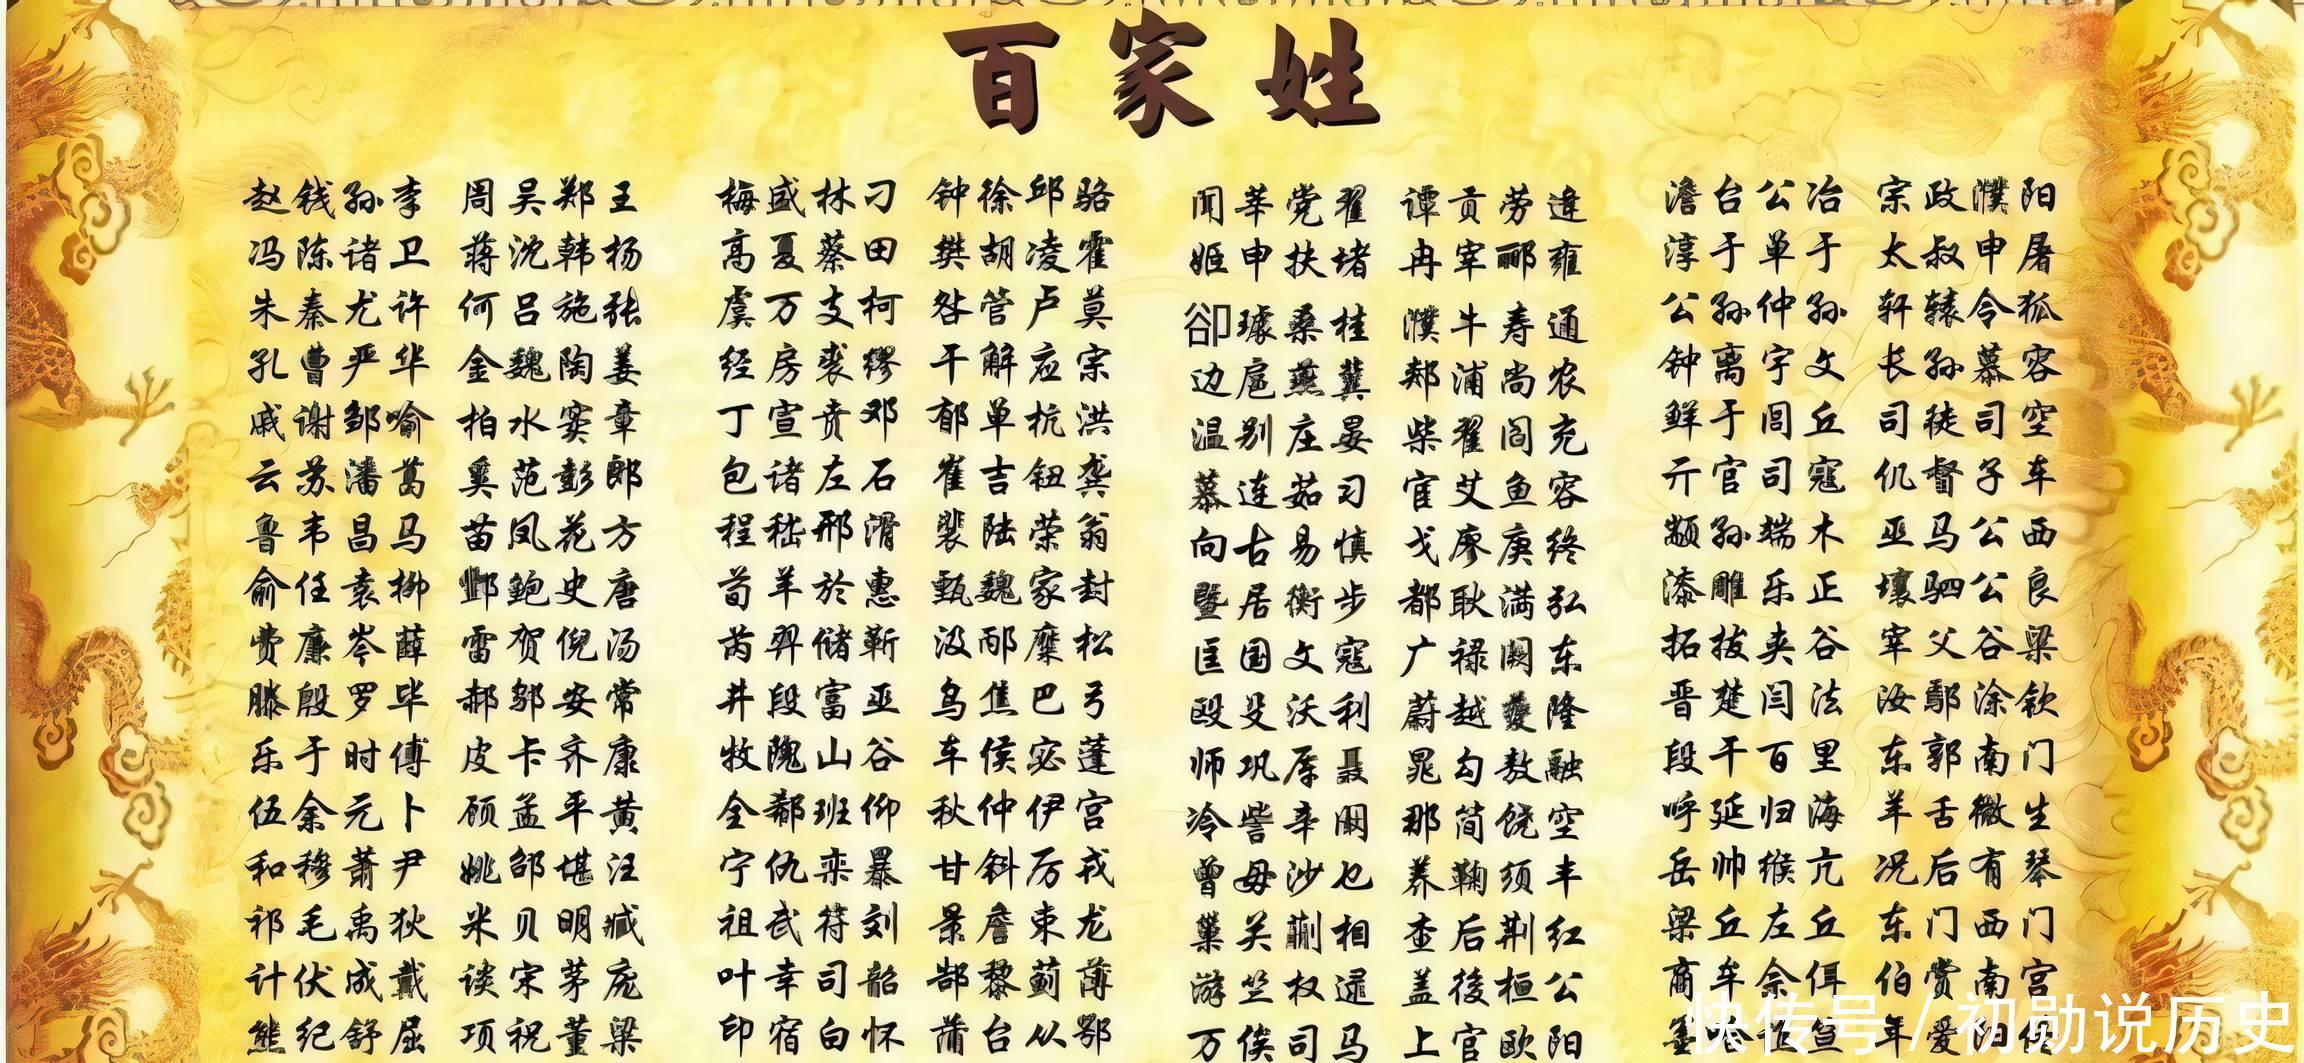 百家姓
赵钱孙李 周吴郑王
冯陈诸卫 蒋沈韩杨
朱秦尤许 何吕施张
孔曹严华 金魏陶姜
戚谢邹喻 柏水窦章
云苏潘葛 奚范彭郎
鲁韦昌马 苗凤花方
俞任袁柳 酆鲍史唐
费廉岑薛 雷贺倪汤
滕殷罗毕 郝邬安常
乐于时傅 皮卡齐康
伍余元卜 顾孟平黄
和穆萧尹 姚邵堪汪
祁毛禹狄 米贝明臧
计伏成戴 谈宋茅庞
熊纪舒屈 项祝董梁
梅盛林刁 钟徐邱骆
高夏蔡田 樊胡凌霍
虞万支柯 昝管卢莫
经房裘缪 干解应宗
丁宣贲邓 郁单杭洪
包诸左石 崔吉钮龚
程嵇邢滑 裴陆荣翁
荀羊於惠 甄魏家封
芮羿储靳 汲邴糜松
井段富巫 乌焦巴弓
牧隗山谷 车侯宓蓬
全郗班仰 秋仲伊宫
宁仇栾暴 甘斜厉戎
祖武符刘 景詹束龙
叶幸司韶 郜黎蓟薄
印宿白怀 蒲台从鄂
闻莘党翟 谭贡劳逄
姬申扶堵 冉宰郦雍
卻璩桑桂 濮牛寿通
边扈燕冀 郏浦尚农
温别庄晏 柴瞿阎充
慕连茹习 宦艾鱼容
向古易慎 戈廖庾终
暨居衡步 都耿满弘
匡国文寇 广禄阙东
殴殳沃利 蔚越夔隆
师巩厍聂 晁勾敖融
冷訾辛阚 那简饶空
曾毋沙乜 养鞠须丰
巢关蒯相 查后荆红
游竺权逯 盖後桓公
万俟司马 上官欧阳
澹台公冶 宗政濮阳
淳于单于 太叔申屠
公孙仲孙 轩辕令狐
钟离宇文 长孙慕容
鲜于闾丘 司徒司空
亓官司寇 仉督子车
颛孙端木 巫马公西
漆雕乐正 壤驷公良
拓拔夹谷 宰父谷梁
晋楚闫法 汝鄢涂钦
段干百里 东郭南门
呼延归海 羊舌微生
岳帅缑亢 况后有琴
梁丘左丘 东门西门
商牟佘佴 伯赏南宫
墨 笪 年爱阳
快传号/初勋说历史